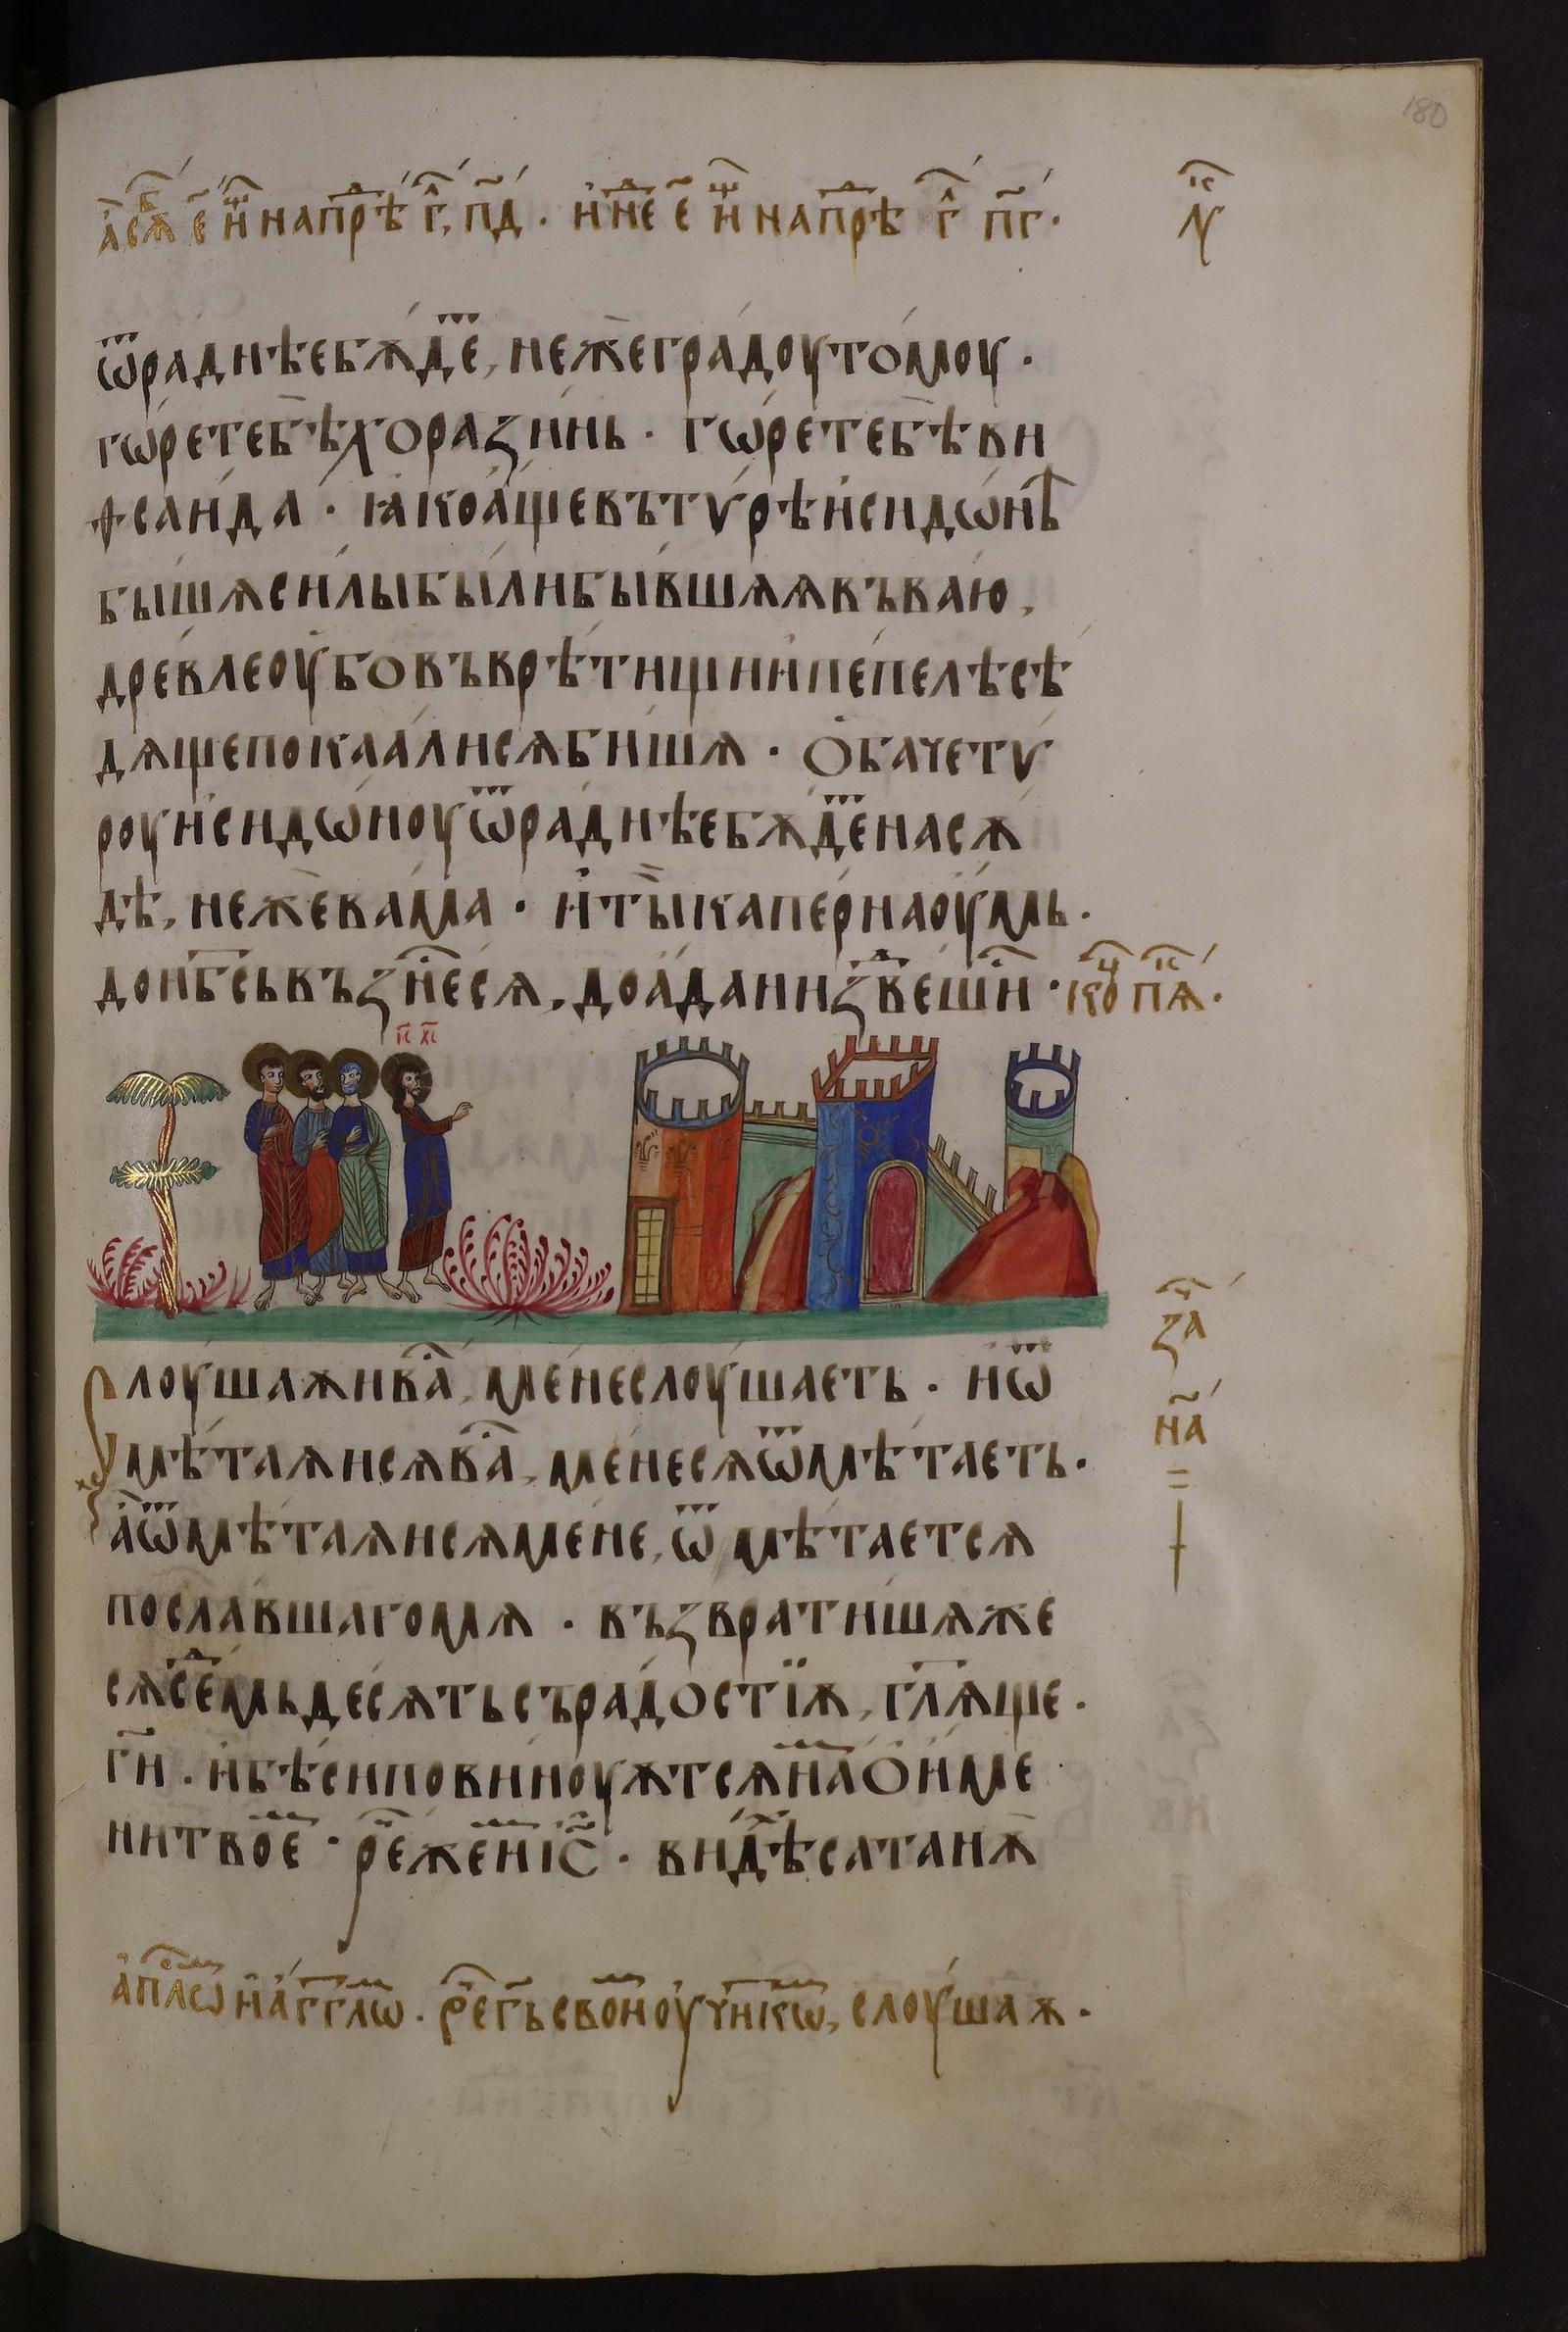 180
а̀ сѫ҇ⷠ е҃ и҇ⷩ напрѣⷣ г҇, п҃д · и҆ неⷣ е҃ и҇ⷩ напрѣⷣ г҇ п҃г ·
ѿраднѣебѫ́деⷮ, нежѐградоутомоу ·
гѡ́ретебѣ̀хоразі́нь · гѡ́ретебѣ̀ви
ѳсаи́да · ꙗ҆коа́щевътѵ́рѣи҆сидѡ́нѣ
бы́шѧси́лыбы́либы́вшѧѧвъваю̀,
дре́влеоу҆́бовъврѣ́тищии҆пе́пелѣсѣ
дѧ́щепокаа́лисѧби́шѧ · О҆ба́четѵ́
роуи҆сидѡ́ноуѿра́днѣебѫ́деⷮнасѫ
дѣ̀, нежѐва́ма · и҆ты̀капе́рнаоу́мь ·
донб҃сьвъзнеⷭ҇сѧ, доа́даниⷥвеⷣшиⷭ҇ · коⷰ҇ пѧⷦ҇ ·
І҃С Х҃С
Слоу́шаѫиваⷭ҇, ме́неслоу́шаеть · иѿ
мѣ́таѧисѧваⷭ҇, ме́несѧѿмѣ́таеть ·
а҆ѿмѣ́таѧисѧме́не, ѿмѣ́таетсѧ
посла́вшагомѧ · възврати́шѧже
сѧсеⷣмьдесѧ́тьсъра́достїѫ, гл҃ѫще ·
г҃и · и҆бѣ́сиповиноу́ѫтсѧнаⷨОи҆ме
нитвоеⷨ · реⷱ҇жеи҆мⷨі҃с · ви́дѣⷯсатанѫ̀
за҇ⷱ
н҃а
=
а҆пⷭ҇лѡⷨ и҆а҆́гг҃лѡⷨ · реⷱ҇г҃ьсвоиⷨоу҆ч҃нкѡⷨ, слоу́шаѫ ·